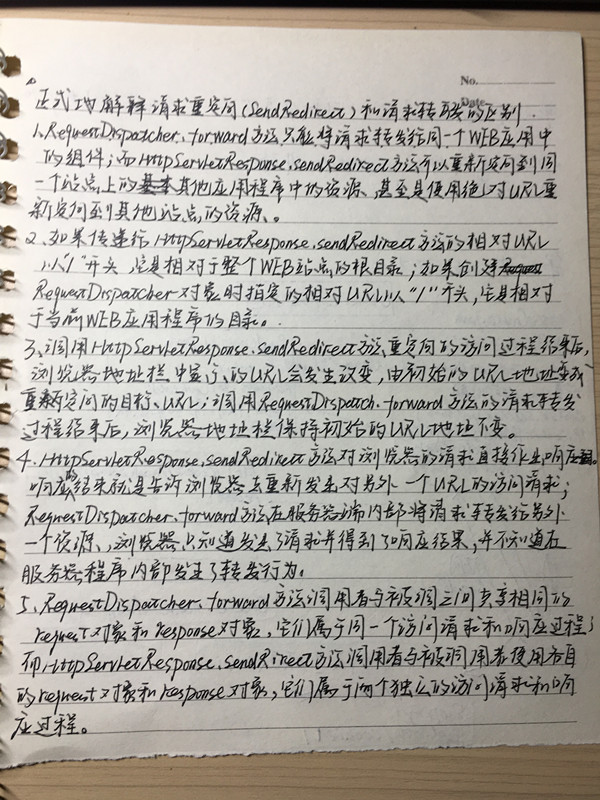 No.
Date
正式地解释请求重定向(SendRedirect)和请求转发的区别.
1、RequestDispatcher.forward方法只能将请求转发给同一个WEB应用中
的组件；而HttpServletResponse.sendRedirect方法可以重新定向到同
一个站点上的其他应用程序中的资源、甚至是使用绝对URL重
新定向到其他站点的资源、。
2、如果传递给HttpServletResponse.sendRedirect方法的相对URL
以“/”开头，它是相对于整个WEB站点的根目录；如果创建
RequestDispatcher对象时指定的相对URL以“/”开头，它是相对
于当前WEB应用程序的目录。
3、调用HttpServletResponse.sendRedirect方法重定向的访问过程结束后，
浏览器地址栏中显示的URL会发生改变，由初始的URL地址变成
重新定向的目标URL；调用RequestDispatch.forward方法的请求转发
过程结束后，浏览器地址栏保持初始的URL地址不变。
4、HttpServletResponse.sendRedirect方法对浏览器的请求直接作出响应。
响应的结果就是告诉浏览器去重新发出对另外一个URL的访问请求；
RequestDispatcher.forward方法在服务器端内部将请求转发给另外
一个资源、，浏览器只知道发出了请求并得到了响应结果，并不知道在
服务器程序内部发生了转发行为。
5、RequestDispatcher.forward方法调用者与被调之间共享相同的
request对象和response对象，它们属于同一个访问请求和响应过程；
而HttpServletResponse.sendRirect方法调用者与被调用者使用各自
的request对象和response对象，它们属于两个独立的访问请求和响
应过程。